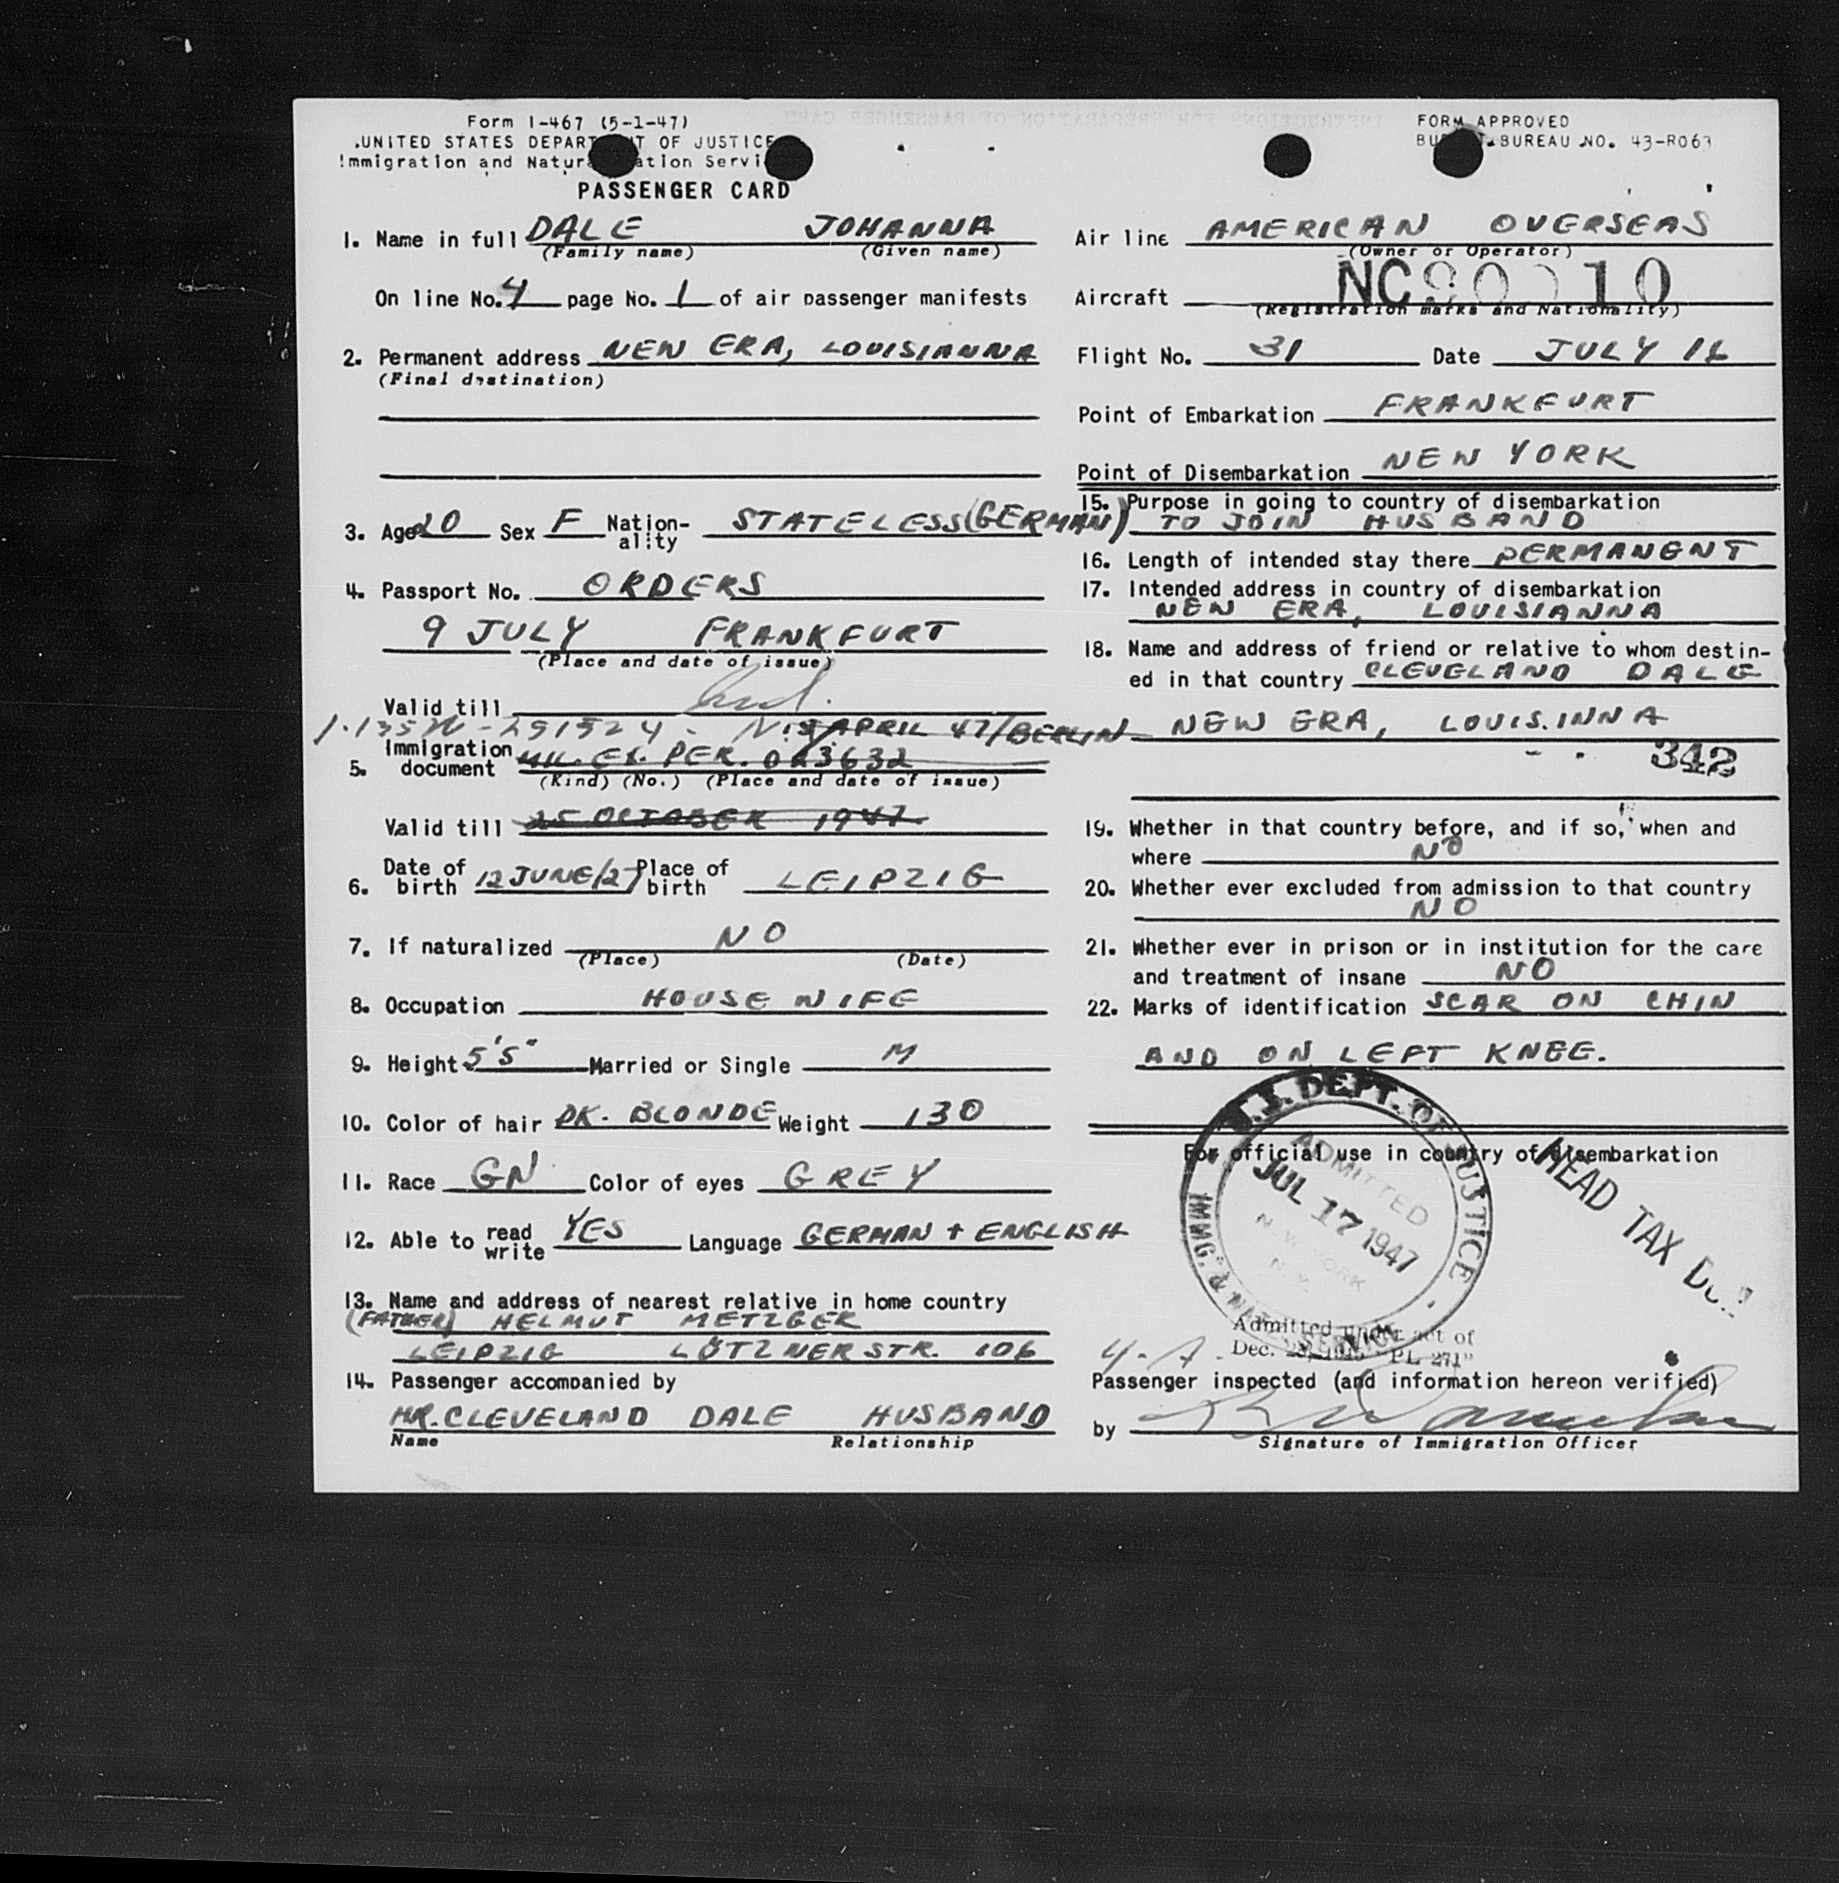 Form I-467 (5-1-47)
UNITED STATES DEPARTMENT OF JUSTICE
Immigration and Naturalization Service
PASSENGER CARD
1. Name in full DALE JOHANNA
(Family name) (Given name)
On line No. 4 page No. 1 of air passenger manifests
2. Permanent address NEW ERA, LOUISIANNA
(Final destination)
3. Age 20 Sex F Nation-ality STATELESS (GERMAN)
4. Passport No. ORDERS
9 JULY FRANKFURT
(Place and date of issue)
Valid till
APRIL 47/BERLIN
5. Immigration document MIL. EX. PER. 023632
(Kind) (No.) (Place and date of issue)
Valid till 25 OCTOBER 1947
6. Date of birth 12 JUNE/27 Place of birth LEIPZIG
7. If naturalized NO
(Place) (Date)
8. Occupation HOUSE WIFE
9. Height 5'5" Married or Single M
10. Color of hair DK. BLONDE Weight 130
11. Race GN Color of eyes GREY
12. Able to read write YES Language GERMAN + ENGLISH
13. Name and address of nearest relative in home country
(FATHER) HELMUT METZGER
LEIPZIG LÜTZNERSTR. 106
14. Passenger accompanied by
MR. CLEVELAND DALE HUSBAND
Name Relationship
FORM APPROVED
BUREAU NO. 43-R063
Air line AMERICAN OVERSEAS
(Owner or Operator)
Aircraft NC90910
(Registration marks and Nationality)
Flight No. 31 Date JULY 16
Point of Embarkation FRANKFURT
Point of Disembarkation NEW YORK
15. Purpose in going to country of disembarkation
TO JOIN HUSBAND
16. Length of intended stay there PERMANENT
17. Intended address in country of disembarkation
NEW ERA, LOUISIANNA
18. Name and address of friend or relative to whom destin-
ed in that country CLEVELAND DALE
NEW ERA, LOUISINNA
342
19. Whether in that country before, and if so, when and
where NO
20. Whether ever excluded from admission to that country
NO
21. Whether ever in prison or in institution for the care
and treatment of insane NO
22. Marks of identification SCAR ON CHIN
AND ON LEFT KNEE.
For official use in country of disembarkation
U.S. DEPT. OF JUSTICE
IMMG. & NATZ. SERVICE
ADMITTED
JUL 17 1947
NEW YORK
N.Y.
HEAD TAX DUE
Admitted under act of
Dec. 28, 1945 "PL 271"
Passenger inspected (and information hereon verified)
by
Signature of Immigration Officer